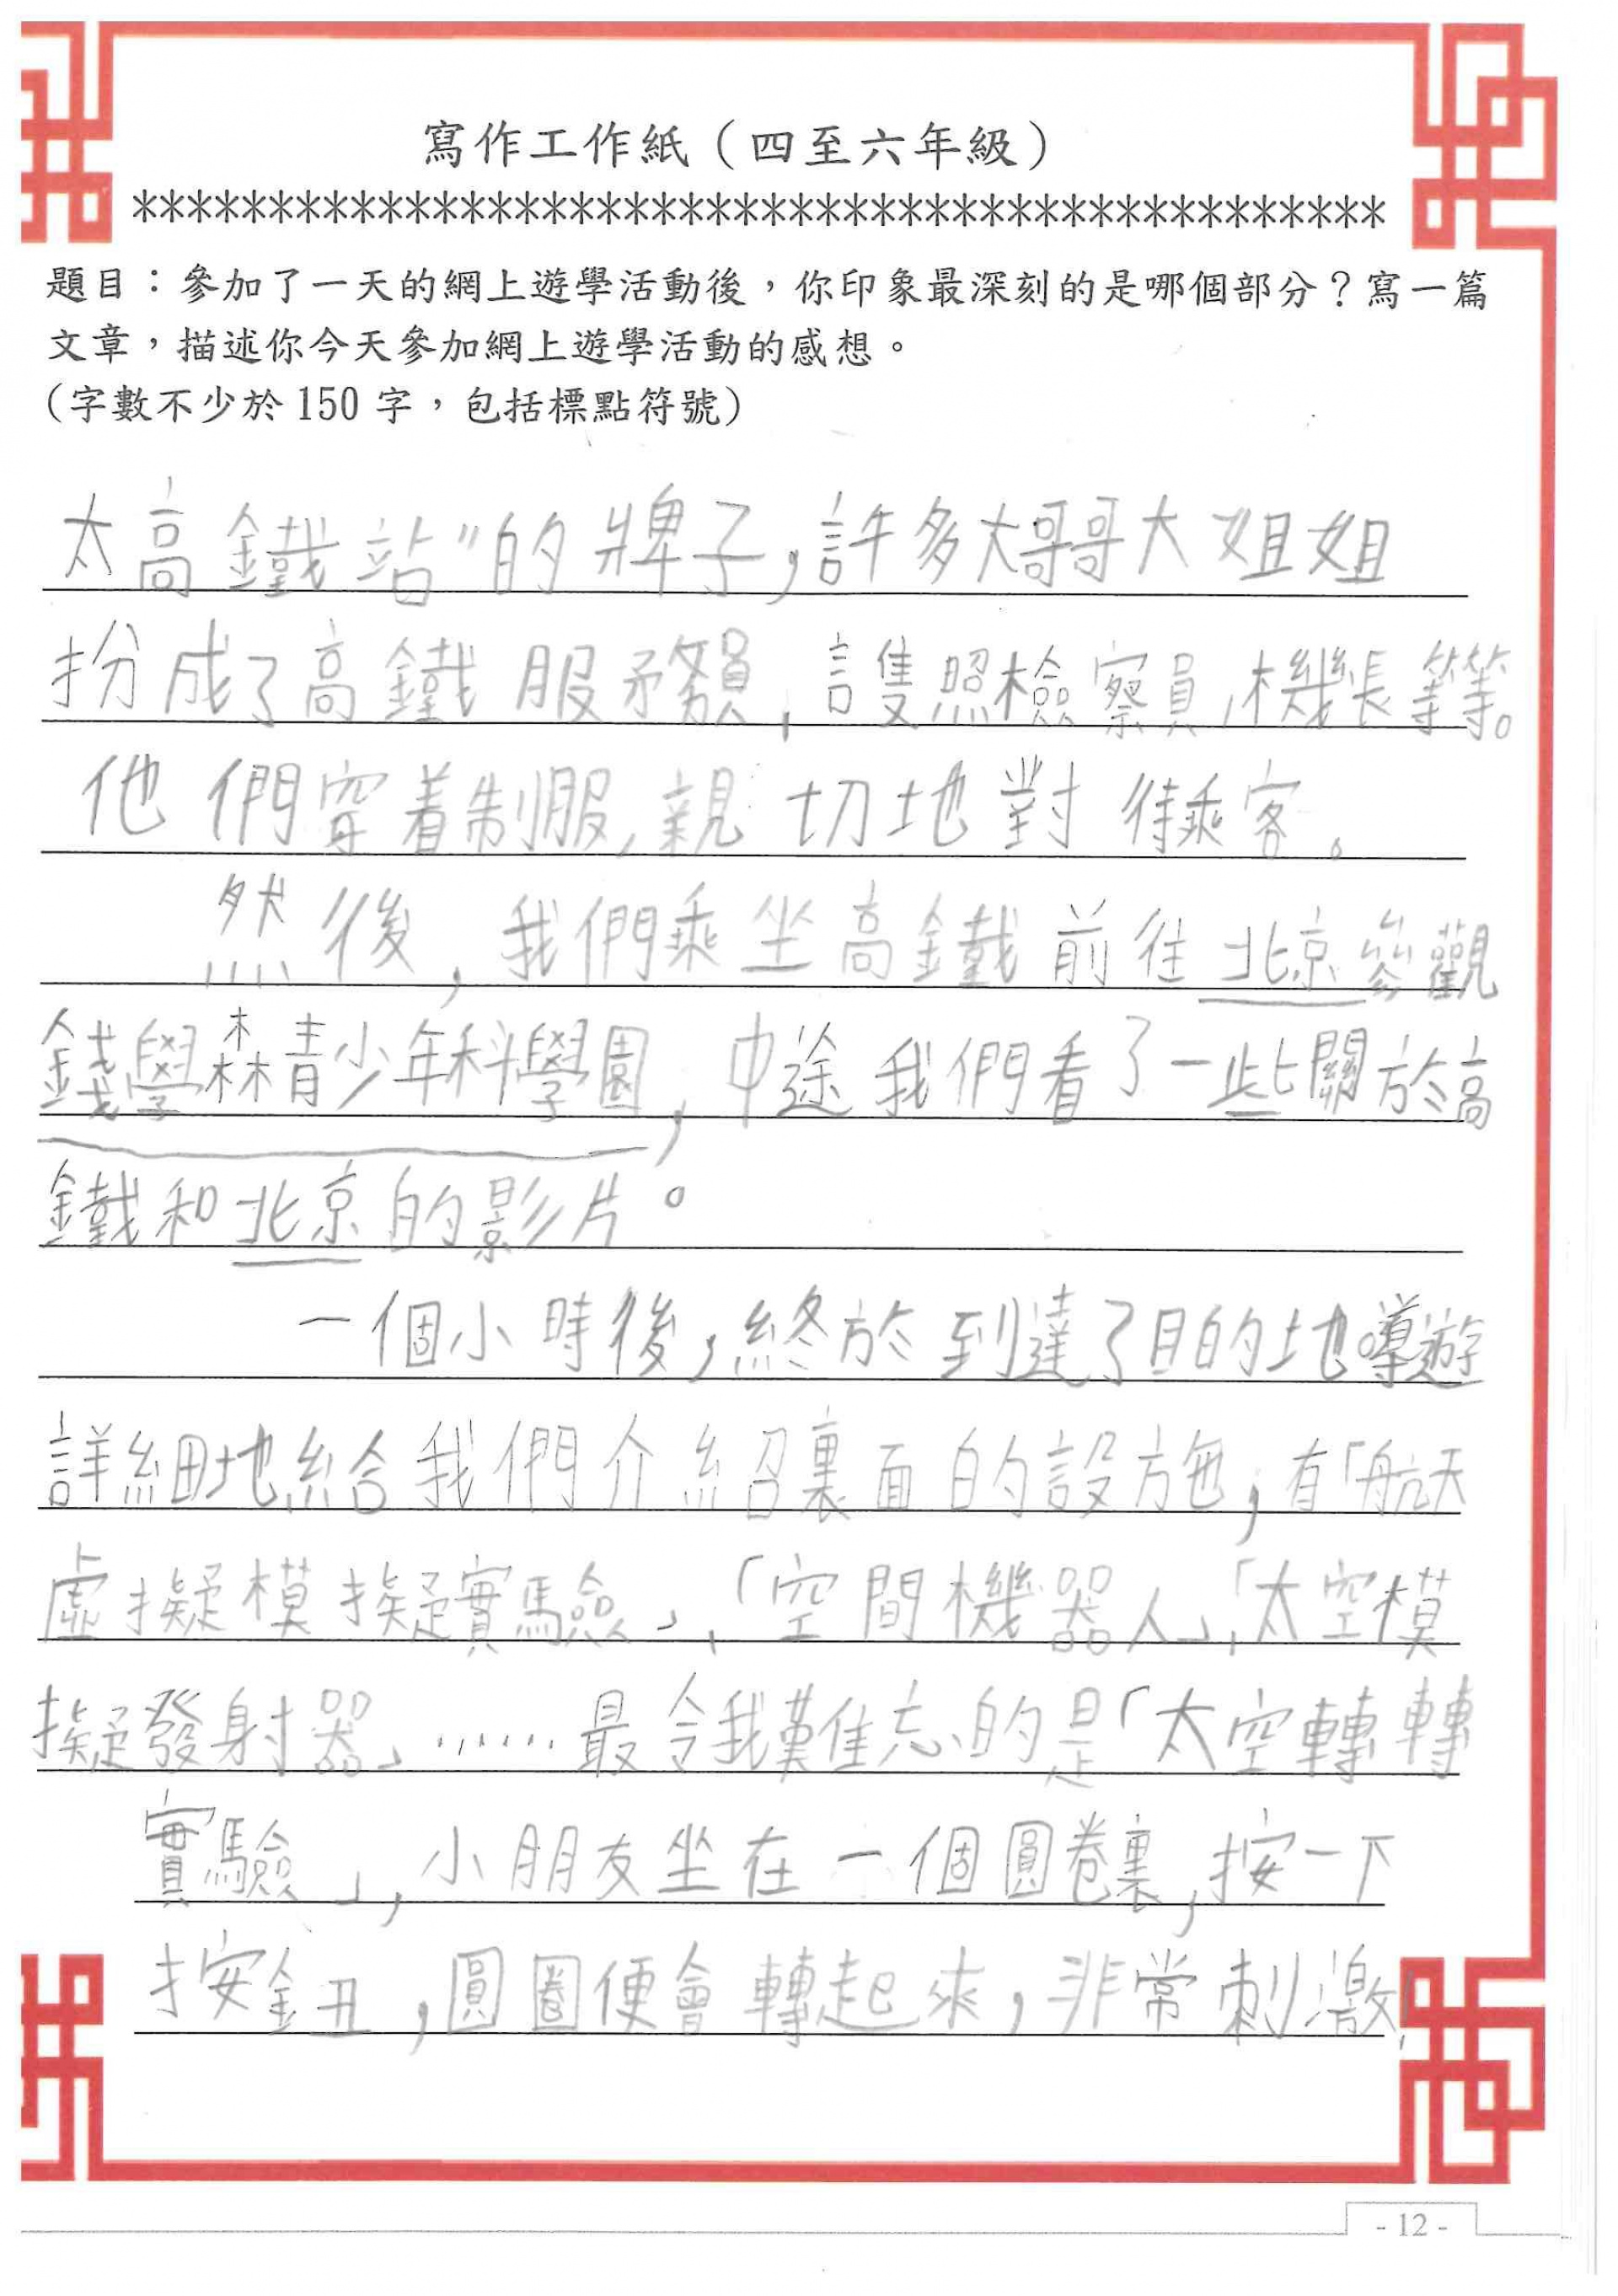 寫作工作紙（四至六年級）
***********************************************
題目：參加了一天的網上遊學活動後，你印象最深刻的是哪個部分？寫一篇
文章，描述你今天參加網上遊學活動的感想。
（字數不少於 150 字，包括標點符號）
太高鐵站”的牌子，許多大哥哥大姐姐
扮成了高鐵服務員、護照檢察員、機長等等。
他們穿着制服，親切地對待乘客。
然後，我們乘坐高鐵前往北京參觀
錢學森青少年科學園，中途我們看了一些關於高
鐵和北京的影片。
一個小時後，終於到達了目的地導遊
詳細地給我們介紹裏面的設施，有「航天
虛擬模擬實驗」、「空間機器人」、「太空模
擬發射器」……最令我難忘的是「太空轉轉
實驗」，小朋友坐在一個圓卷裏，按一下
按鈕，圓圈便會轉起來，非常刺激！
- 12 -